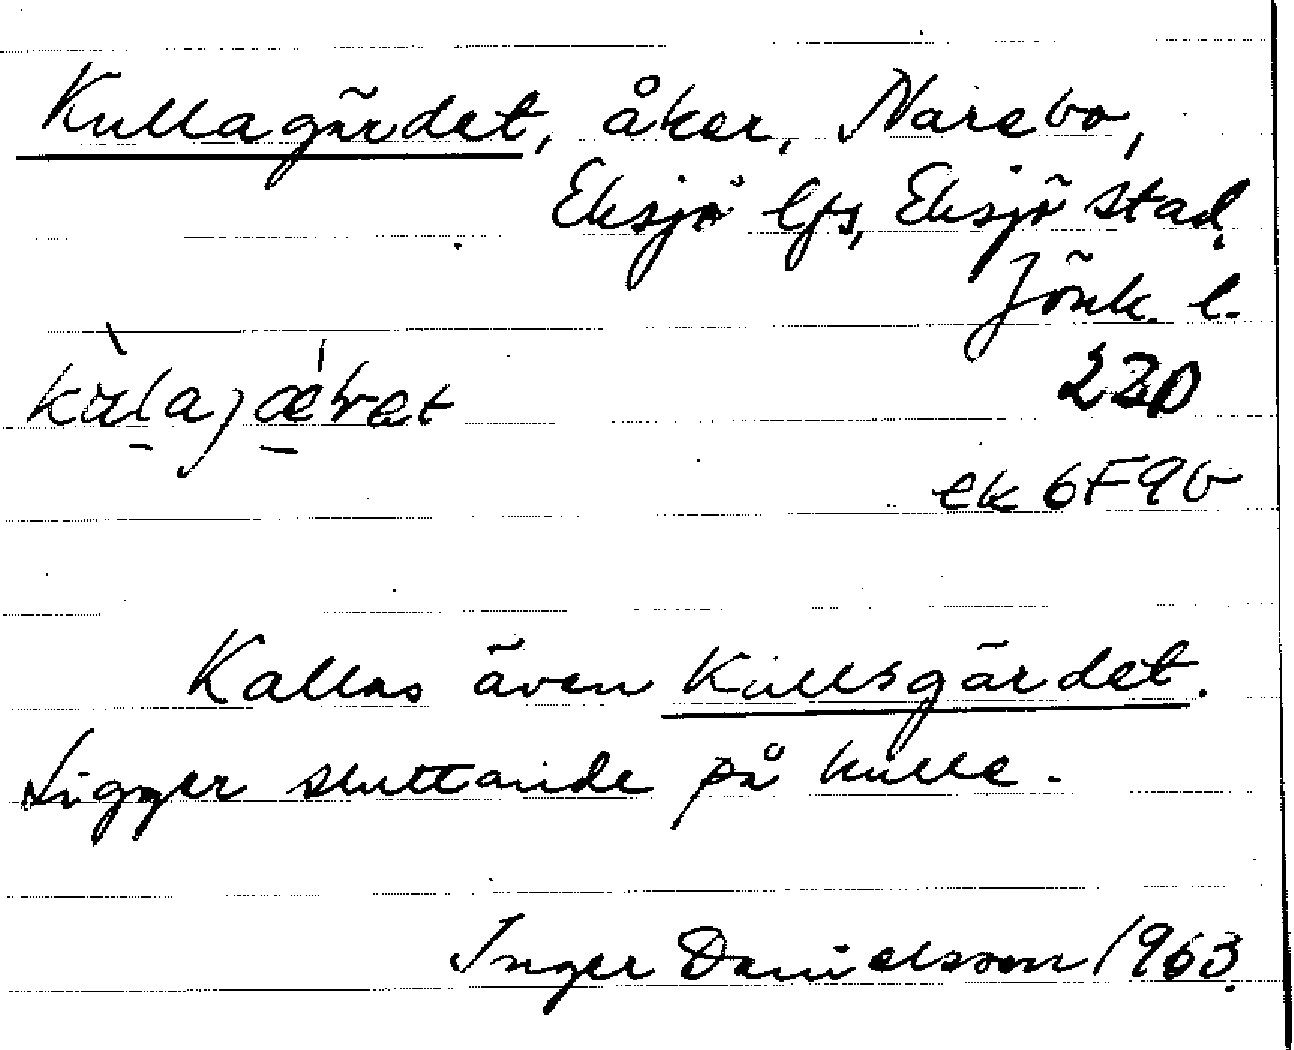 Kullagärdet, åker, Narebo,
Eksjö lfs, Eksjö stad,
Jönk. l.
ek 6F9b
Kallas även Kullsgärdet.
Ligger sluttande på kulle.
Inger Danielsson 1963.